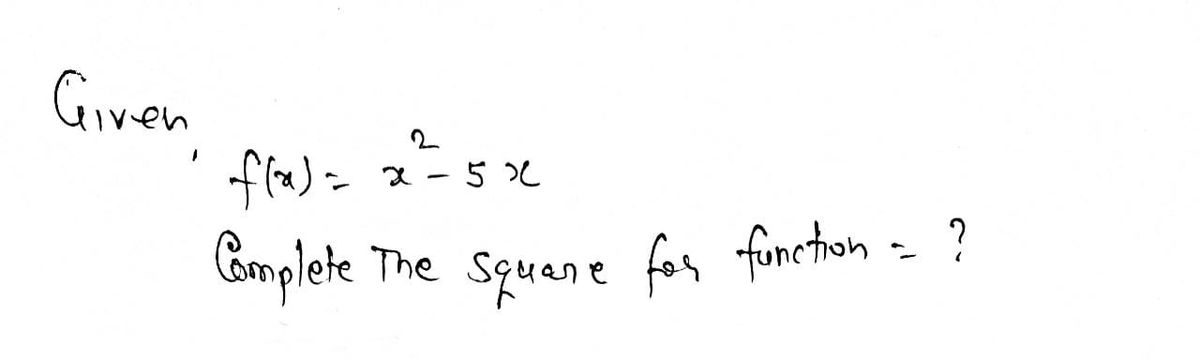 Given,
f(x) = x² - 5x
Complete The square for function = ?